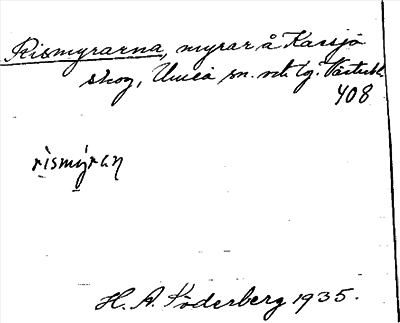 Rismyrarna, myrar å Kassjö
skog, Umeå sn. och lg. Västerb.
408
rismýran
H. A. Söderberg 1935.